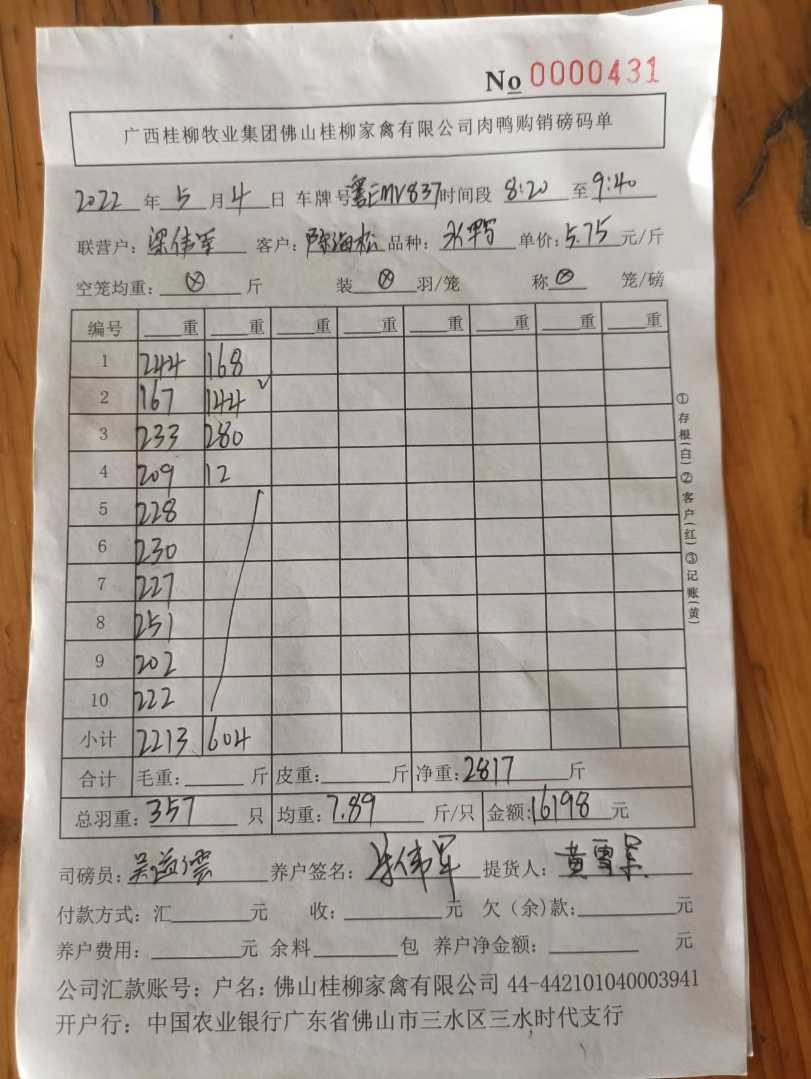 No 0000431
广西桂柳牧业集团佛山桂柳家禽有限公司肉鸭购销磅码单
2022 年 5 月 4 日 车牌号 粤EMV837 时间段 8:20 至 9:40
联营户: 梁伟军 客户: 陈海松 品种: 水鸭 单价: 5.75 元/斤
空笼均重: ⊗ 斤 装 ⊗ 羽/笼 称 ⊗ 笼/磅
编号 重 重 重 重 重 重 重 重
1 244 168
2 167 144
3 233 280
4 209 12
5 228
6 230
7 227
8 251
9 202
10 222
小计 2213 604
合计 毛重: 斤 皮重: 斤 净重: 2817 斤
总羽重: 357 只 均重: 7.89 斤/只 金额: 16198 元
司磅员: 吴益云 养户签名: 梁伟军 提货人: 黄雪
付款方式: 汇 元 收: 元 欠(余)款: 元
养户费用: 元 余料 包 养户净金额: 元
公司汇款账号: 户名: 佛山桂柳家禽有限公司 44-442101040003941
开户行: 中国农业银行广东省佛山市三水区三水时代支行
①存根(白)②客户(红)③记账(黄)